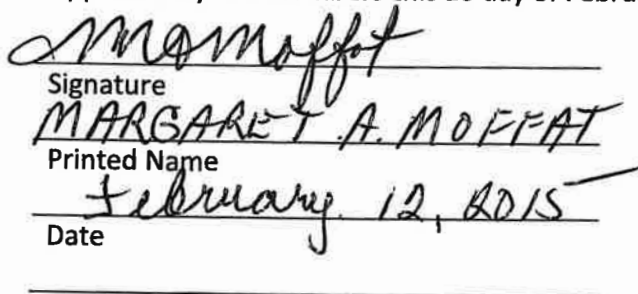 day of
MAMoffat
Signature
MARGARET A. MOFFAT
Printed Name
February 12, 2015
Date